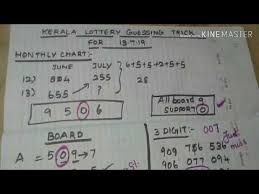 KINEMASTER
KERALA LOTTERY GUESSING TRICK
FOR 13-7-19
MONTHLY CHART:-
JUNE JULY 6+5+5+2+5+5
12) 884 255 28
13) 655 → ?
9 5 0 6
All board 9
SUPPORT 0
BOARD
A = 509 → 7
3 DIGIT:- 007
Just miss
909 786 536
906 077 094